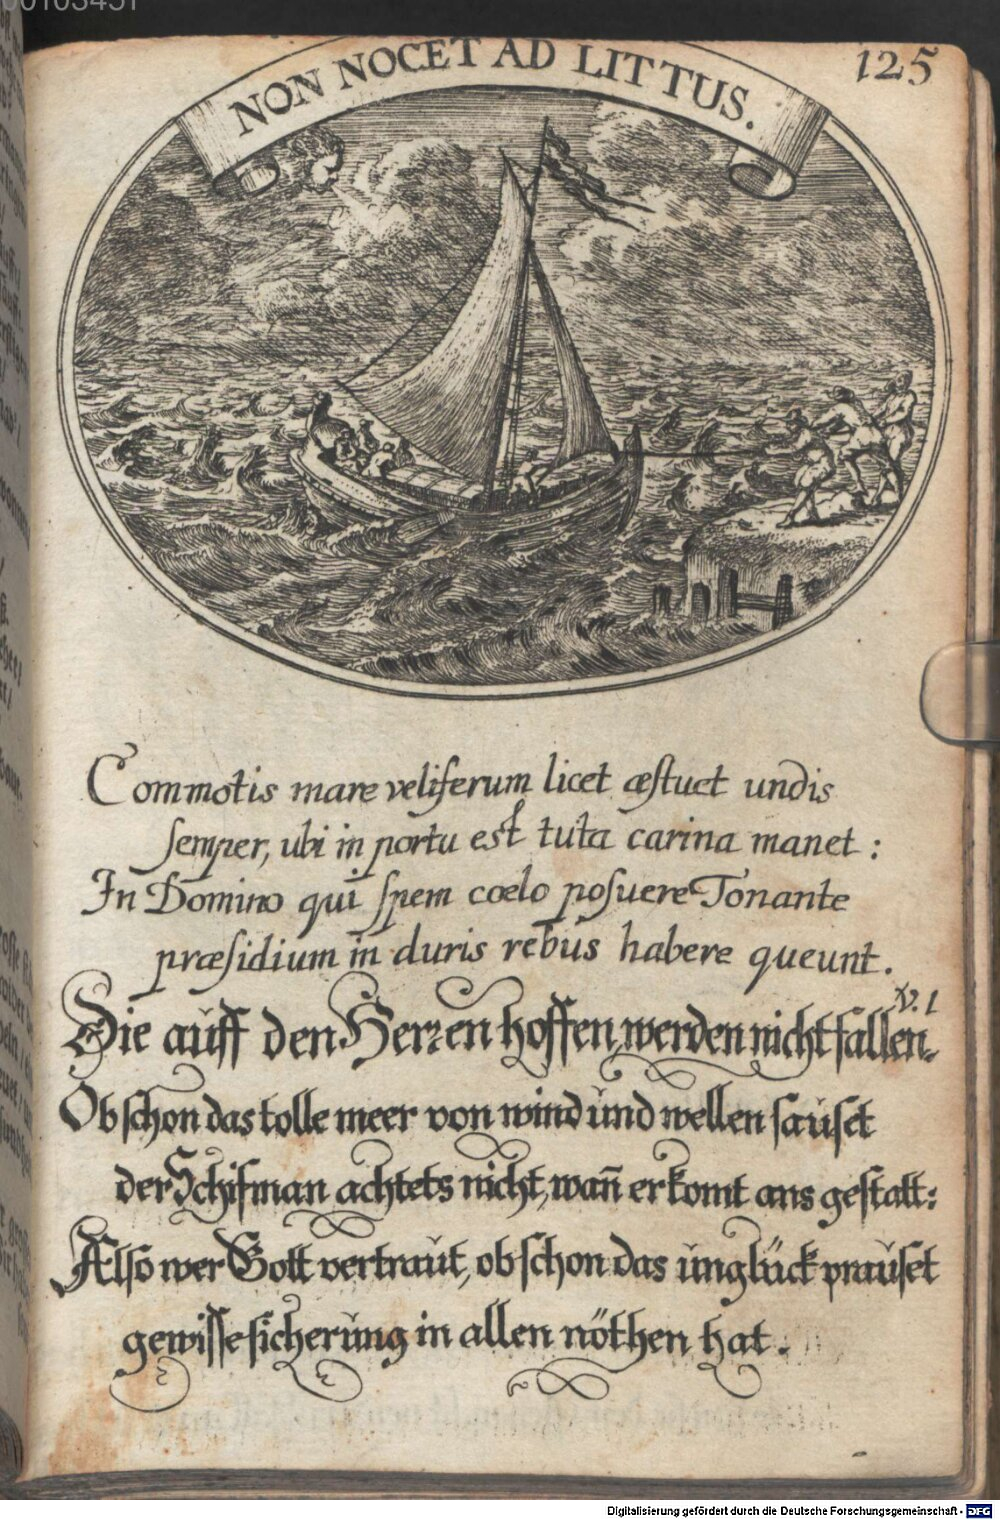 00103451
125
NON NOCET AD LITTUS.
Commotis mare veliferum licet æstuet undis
semper, ubi in portu est tuta carina manet:
In Domino qui spem coelo posuere Tonante
præsidium in duris rebus habere queunt.
V. 1
Die auff den Herren hoffen, werden nicht fallen.
Ob schon das tolle meer von wind und wellen sauset
der Schifman achtets nicht, wañ er komt ans gestatt:
Also wer Gott vertraut, ob schon das unglück prauset
gewisse sicherung in allen nöthen hat.
Digitalisierung gefördert durch die Deutsche Forschungsgemeinschaft - DFG